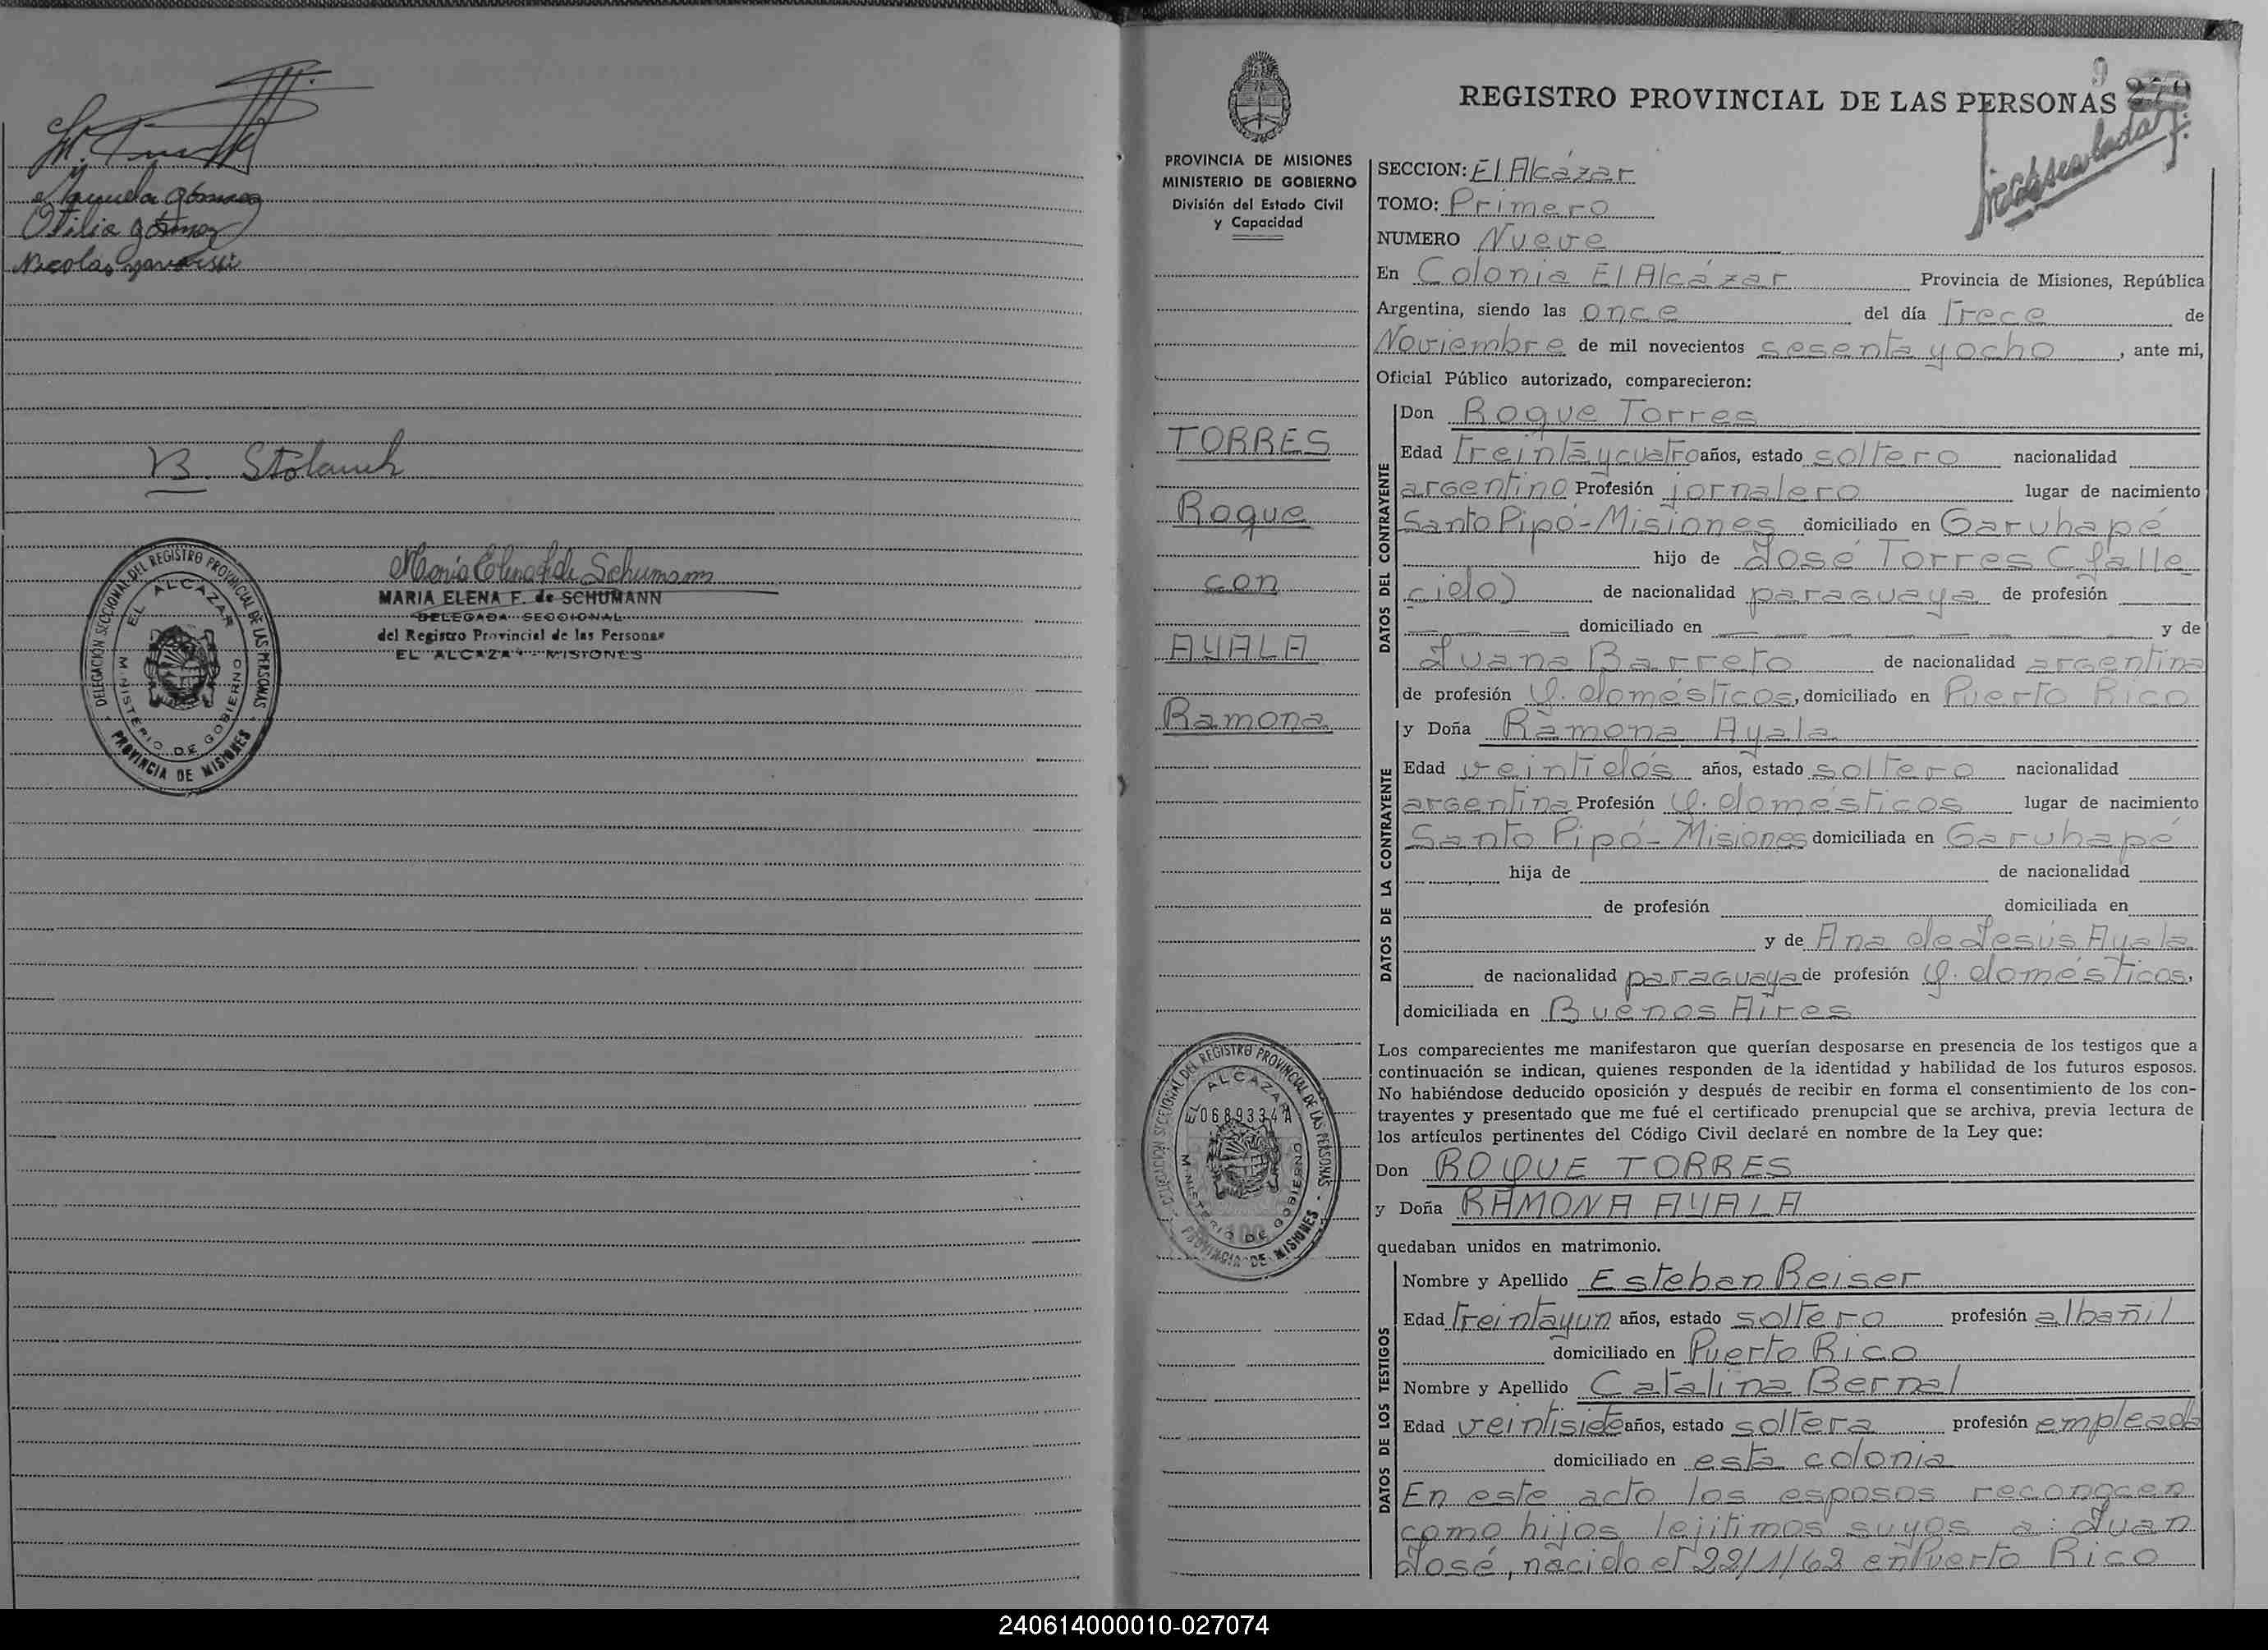 Otilia Gómez
Nicolas
B. Stolaruk
DELEGACIÓN SECCIONAL DEL REGISTRO PROVINCIAL DE LAS PERSONAS
EL ALCAZAR
MINISTERIO DE GOBIERNO
PROVINCIA DE MISIONES
Maria Elena F. de Schumann
MARIA ELENA F. de SCHUMANN
DELEGADA SECCIONAL
del Registro Provincial de las Personas
EL ALCAZAR - MISIONES
9
REGISTRO PROVINCIAL DE LAS PERSONAS
PROVINCIA DE MISIONES
MINISTERIO DE GOBIERNO
División del Estado Civil
y Capacidad
TORRES
Roque
con
AYALA
Ramona
DELEGACIÓN SECCIONAL DEL REGISTRO PROVINCIAL DE LAS PERSONAS
EL ALCAZAR
0689334A
MINISTERIO DE GOBIERNO
100
PROVINCIA DE MISIONES
SECCION: El Alcázar
TOMO: Primero
NUMERO Nueve
En Colonia El Alcázar Provincia de Misiones, República
Argentina, siendo las once del día Trece de
Noviembre de mil novecientos sesenta y ocho, ante mi,
Oficial Público autorizado, comparecieron:
DATOS DEL CONTRAYENTE
Don Roque Torres
Edad Treinta y cuatro años, estado soltero nacionalidad
argentino Profesión jornalero lugar de nacimiento
Santo Pipó - Misiones domiciliado en Garuhapé
hijo de José Torres (falle
cido) de nacionalidad paraguaya de profesión
— — — — domiciliado en — — — — — — — y de
Juana Barreto de nacionalidad argentina
de profesión Q. domésticos, domiciliado en Puerto Rico
DATOS DE LA CONTRAYENTE
y Doña Ramona Ayala
Edad veintidós años, estado soltero nacionalidad
argentina Profesión Q. domésticos lugar de nacimiento
Santo Pipó - Misiones domiciliada en Garuhapé
hija de de nacionalidad
de profesión domiciliada en
y de Ana de Jesús Ayala
de nacionalidad paraguaya de profesión Q. domésticos,
domiciliada en Buenos Aires
Los comparecientes me manifestaron que querían desposarse en presencia de los testigos que a
continuación se indican, quienes responden de la identidad y habilidad de los futuros esposos.
No habiéndose deducido oposición y después de recibir en forma el consentimiento de los con-
trayentes y presentado que me fué el certificado prenupcial que se archiva, previa lectura de
los artículos pertinentes del Código Civil declaré en nombre de la Ley que:
Don ROQUE TORRES
y Doña RAMONA AYALA
quedaban unidos en matrimonio.
DATOS DE LOS TESTIGOS
Nombre y Apellido Esteban Reiser
Edad treinta y un años, estado soltero profesión albañil
domiciliado en Puerto Rico
Nombre y Apellido Catalina Bernal
Edad veintisiete años, estado soltera profesión empleada
domiciliado en esta colonia
En este acto los esposos reconocen
como hijos lejitimos suyos a: Juan
José, nacido el 22/1/63 en Puerto Rico
240614000010-027074